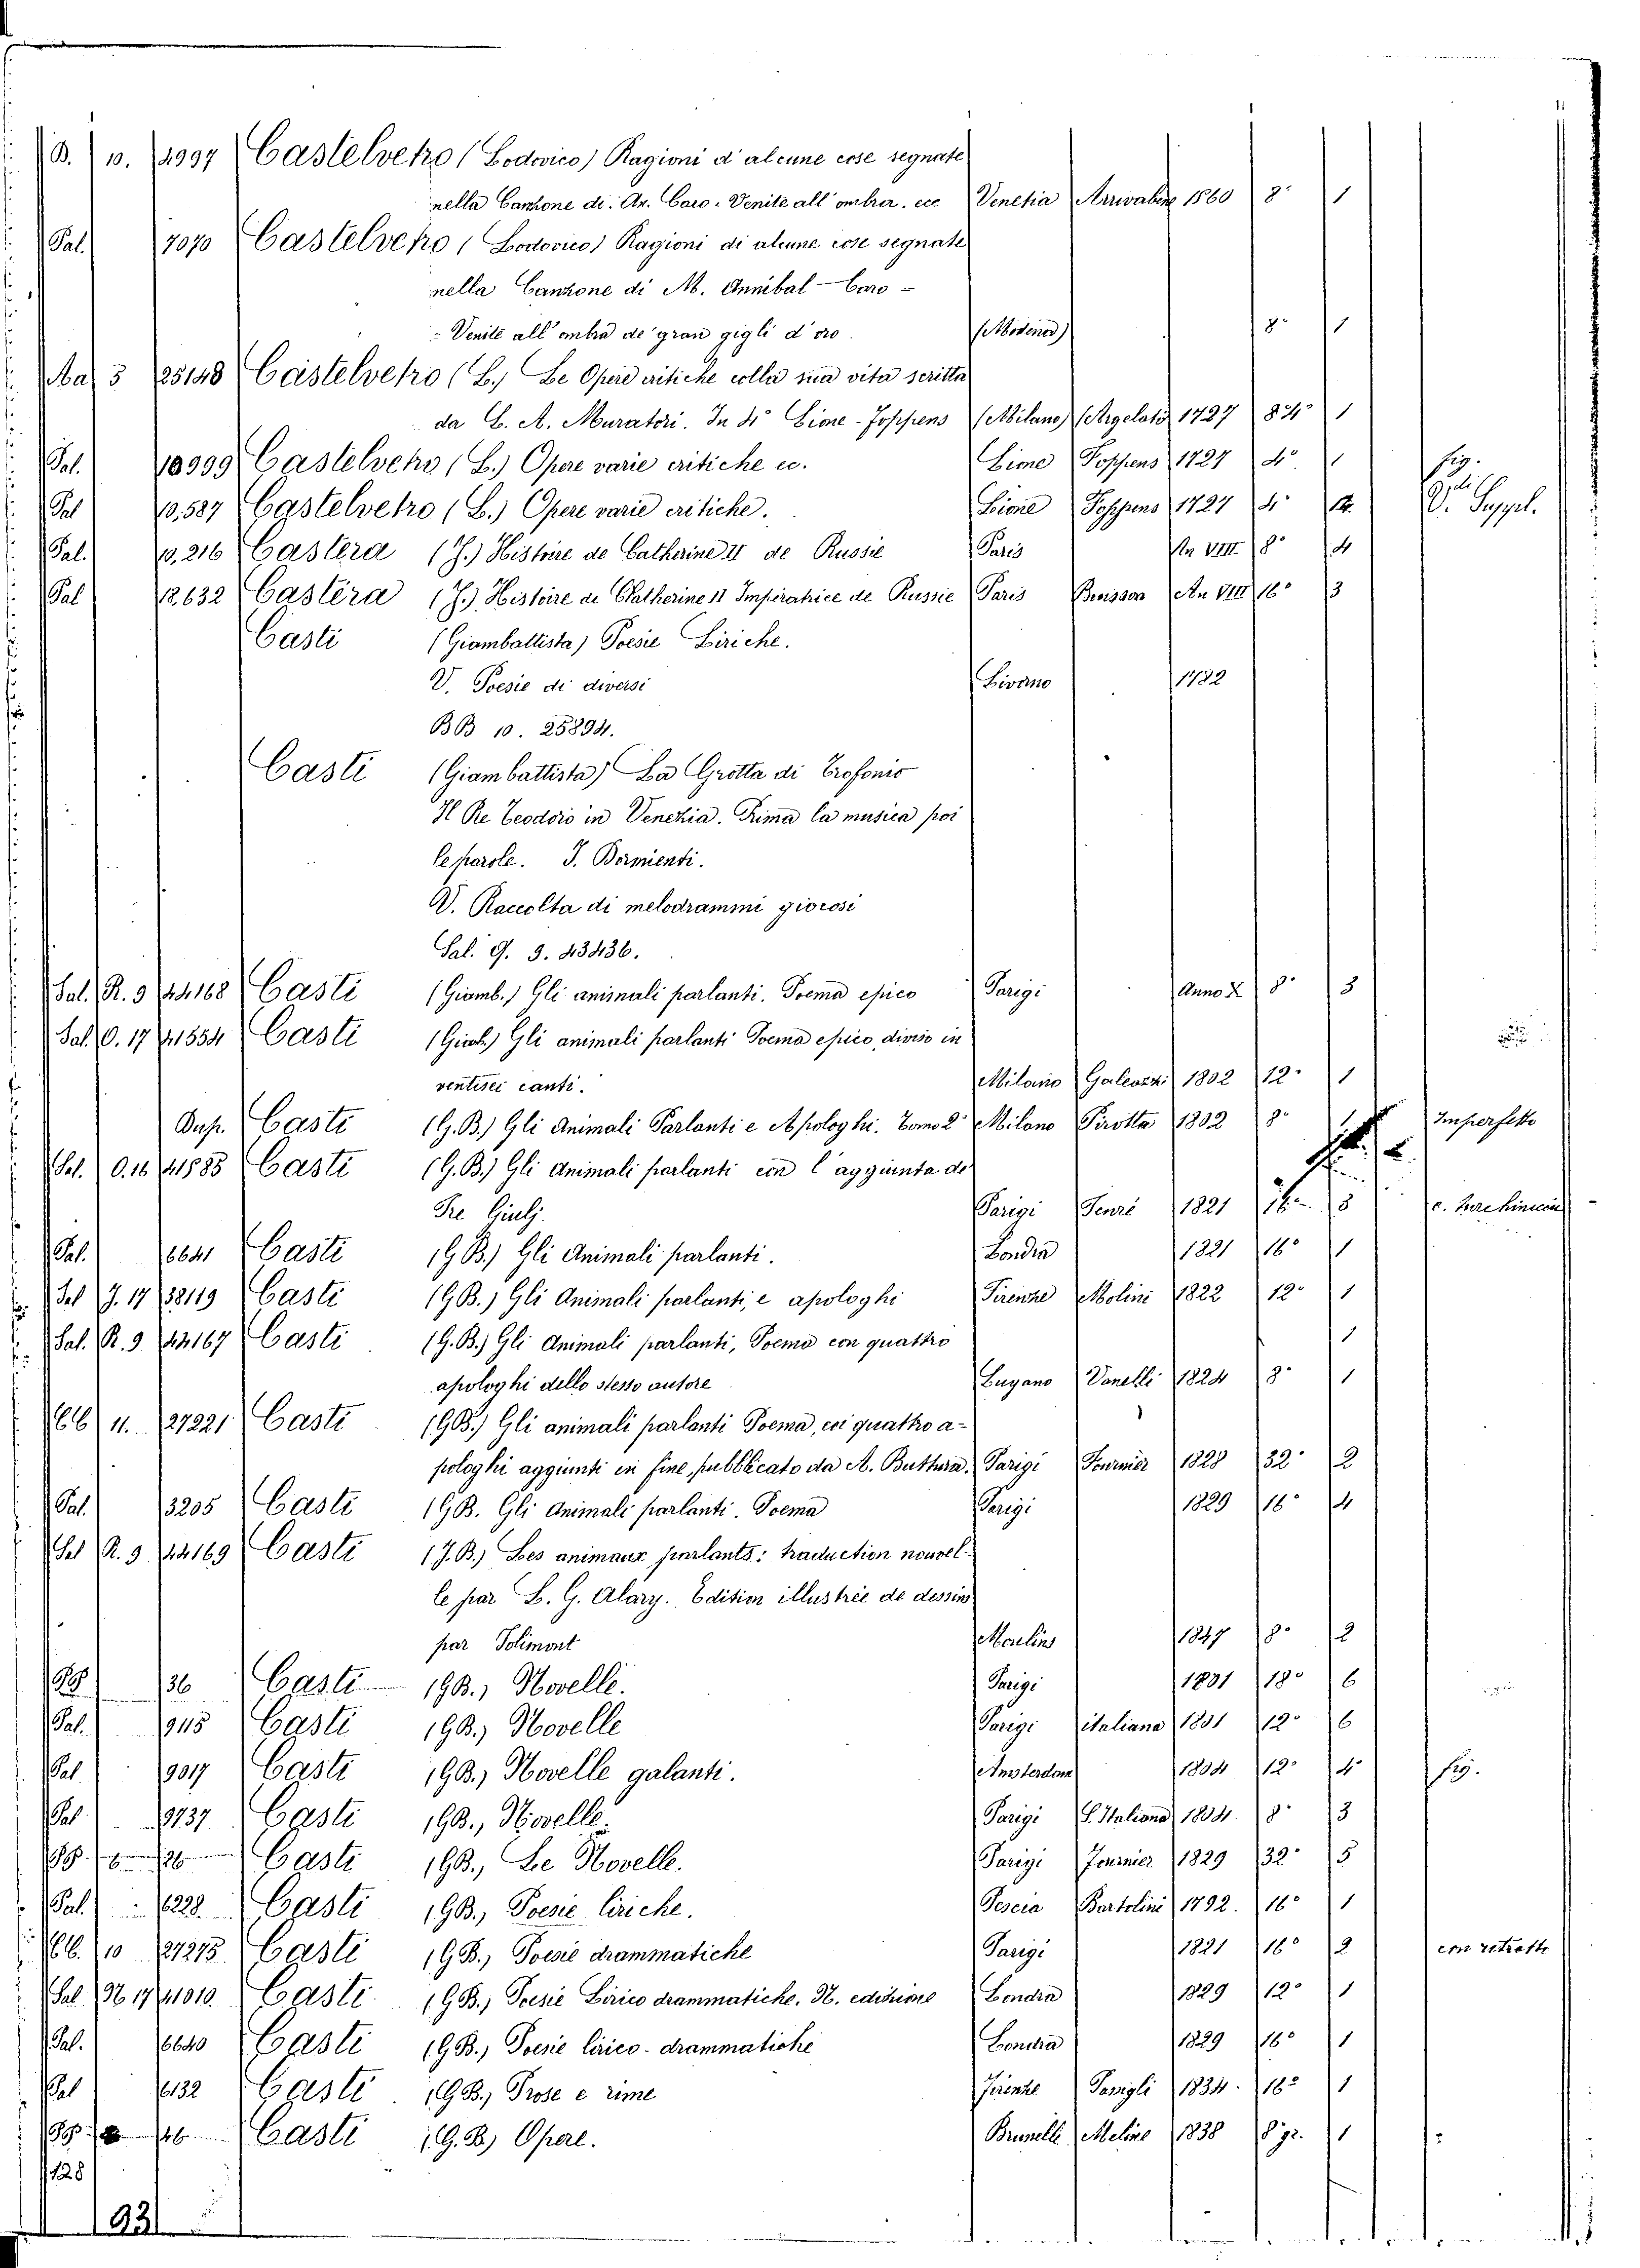 B. 10. 4997 Castelvetro (Lodovico) Ragioni d'alcune cose segnate
nella Canzone di: An. Caro: Venite all'ombra. ecc Venetia Arrivabene 1560 8° 1
Pal. 7070 Castelvetro (Lodovico) Ragioni di alcune cose segnate
nella Canzone di M. Annibal Caro -
- Venite all'ombra de'gran gigli d'oro. (Modena) 8° 1
3 25148 Castelvetro (L.) Le Opere critiche colla sua vita scritta
da L. A. Muratori. In 4° Lione - Foppens (Milano) (Argelati) 1727 1
Pal. 10999 Castelvetro (L.) Opere varie critiche ec. Lione Foppens 1727 4° 1 fig.
Pal 10,587 Castelvetro (L.) Opere varie critiche. Lione Foppens 1727 4° V. Suppl.
Pal. 10,216 Castera (J.) Histoire de Catherine II de Russie Paris An VIII 8° 4
Pal 12,632 Castéra (J.) Histoire de Catherine II Impératrice de Russie Paris Buisson An VIII 16° 3
Casti (Giamballista) Poesie Liriche.
V. Poesie di diversi Livorno 1782
BB 10. 25894.
Casti (Giambattista) La Grotta di Trofonio
Il Re Teodoro in Venezia. Prima la musica poi
le parole. I. Dormienti.
V. Raccolta di melodrammi giocosi
Sal. G. 9. 43436.
Sal. R. 9 44168 Casti (Giamb.) Gli animali parlanti. Poema epico Parigi Anno X 8° 3
Sal. O. 17 41554 Casti (Giamb) Gli animali parlanti Poema epico, diviso in
ventisei canti. Milano Galeazzi 1802 12° 1
Dup. Casti (G. B.) Gli Animali Parlanti e Apologhi. Tomo 2° Milano Pirotta 1802 8° Imperfetto
Sal. O.16 41585 Casti (G. B.) Gli Animali parlanti con l'aggiunta de
Tre Giulj. Parigi 1821 3
Pal. 6641 Casti (G. B.) Gli Animali parlanti. Londra 1821 16° 1
Sal J. 17 38119 Casti (G B.) Gli Animali parlanti, e apologhi Firenze Molini 1822 12° 1
Sal. R. 9 44167 Casti (G. B.) Gli Animali parlanti, Poema con quattro 1
apologhi dello stesso autore Lugano Vanelli 1824 8° 1
11. 27221 Casti (G B.) Gli animali parlanti Poema, coi quattro a-
pologhi aggiunti in fine, pubblicato da A. Buttura. Parigi Fournier 1828 32° 2
Pal. 3205 Casti (G B. Gli Animali parlanti. Poema Parigi 1829 16° 4
Sal R. 9 44169 Casti (J. B.) Les animaux parlants: traduction nouvel-
le par L. G. Alary. Edition illustrée de dessins
par Polimont Moulins 1847 8° 2
36 Casti (G B.) Novelle. Parigi 1801 18° 6
Pal. 945 Casti (G B.) Novelle Parigi italiana 1801 12° 6
Pal 9017 Casti (G B.) Novelle galanti. Amsterdam 1804 12° 4 fig.
Pal 9737 Casti (G B., Novelle. Parigi S. Italiana 1804. 8° 3
6 26 Casti (G B., Le Novelle. Parigi Fournier 1829 32° 5
Pal. 6228. Casti (G B., Poesie liriche. Pescia Bartolini 1792. 16° 1
10 27275 Casti (G B., Poesie drammatiche Parigi 1821 16° 2 con ritratto
Sal N 17 41010. Casti (G B.) Poesie Lirico drammatiche. N. edizione Londra 1829 12° 1
Pal. 6640 Casti (G B.) Poesie lirico-drammatiche Londra 1829 16° 1
Pal 6132 Casti (G B.) Prose e rime Firenze Passigli 1834. 16° 1
46 Casti (G. B.) Opere. Bruxelle Meline 1838 8 gr. 1
128
93